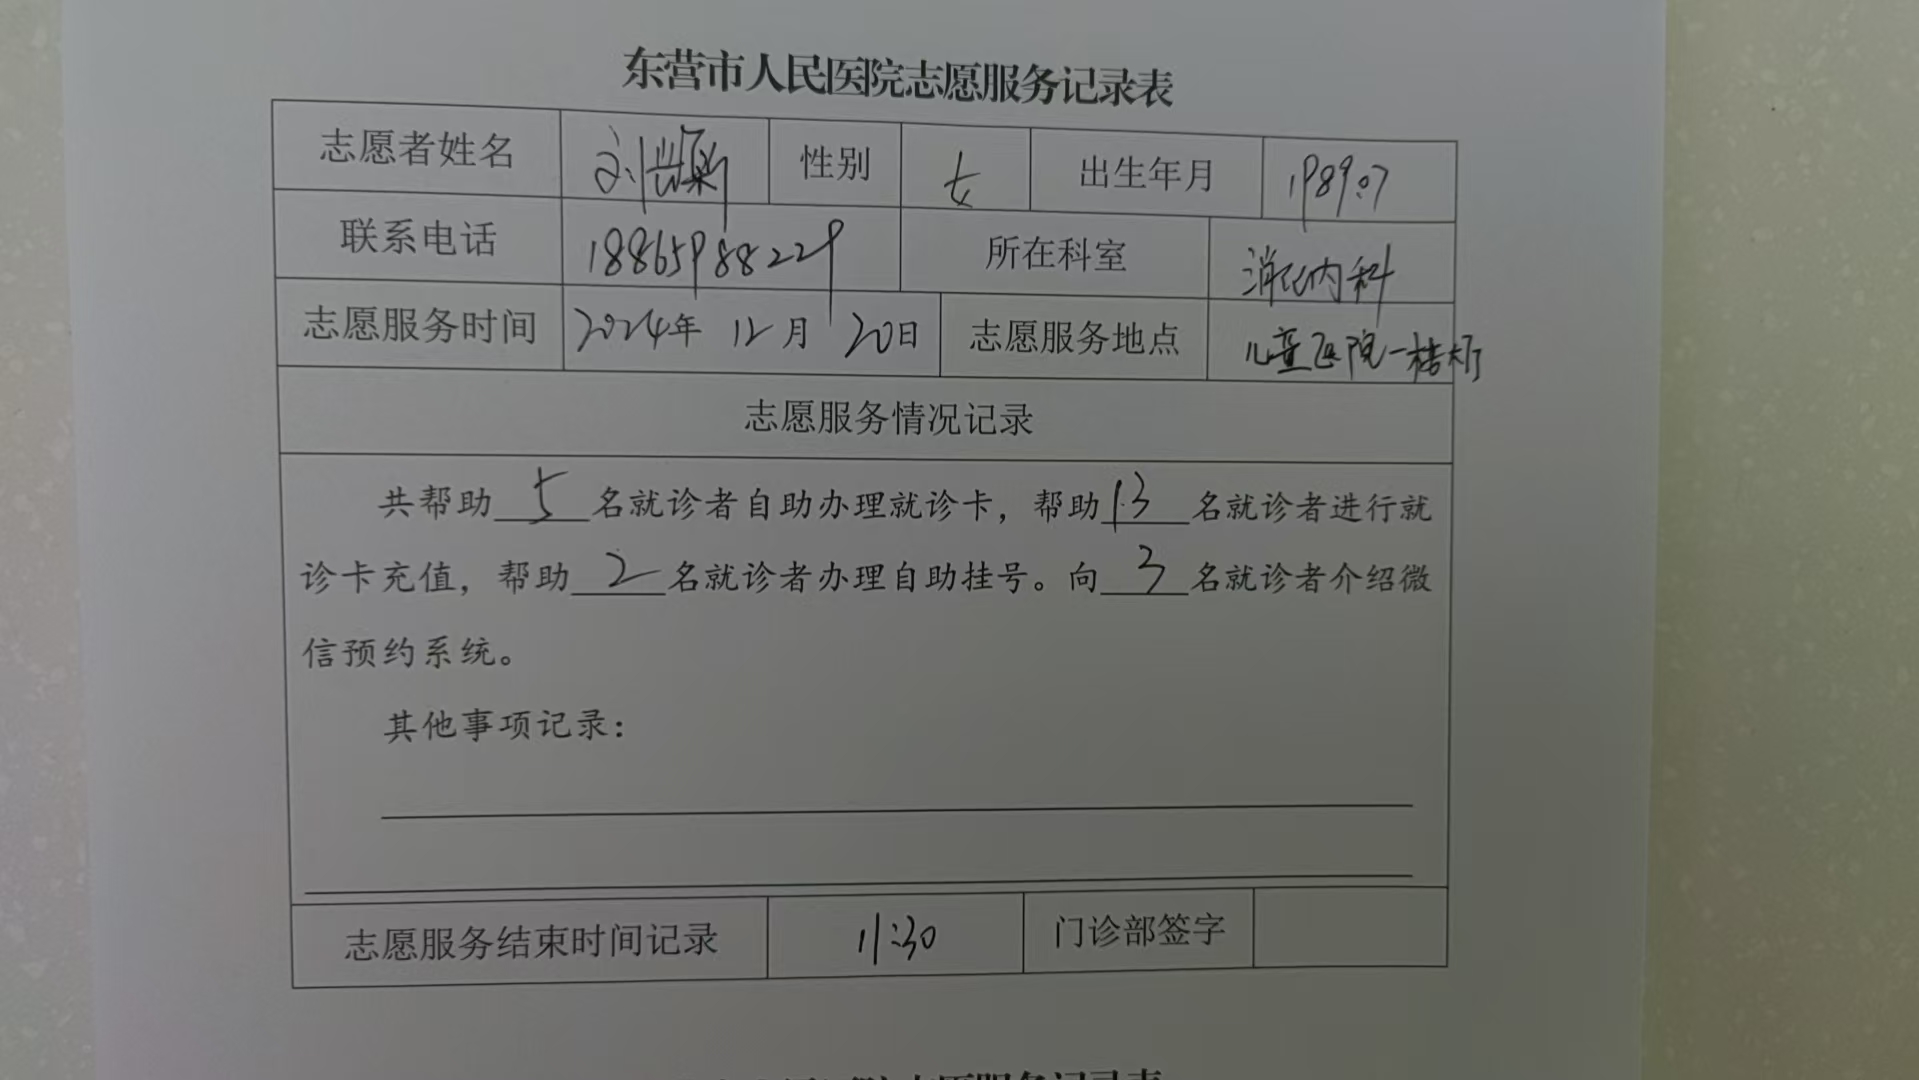 东营市人民医院志愿服务记录表
志愿者姓名 刘 性别 女 出生年月 1989.7
联系电话 18865988229 所在科室 消化内科
志愿服务时间 2024年 12月 20日 志愿服务地点 儿童医院一楼大厅
志愿服务情况记录
共帮助 5 名就诊者自助办理就诊卡，帮助 13 名就诊者进行就
诊卡充值，帮助 2 名就诊者办理自助挂号。向 3 名就诊者介绍微
信预约系统。
其他事项记录：
志愿服务结束时间记录 11:30 门诊部签字